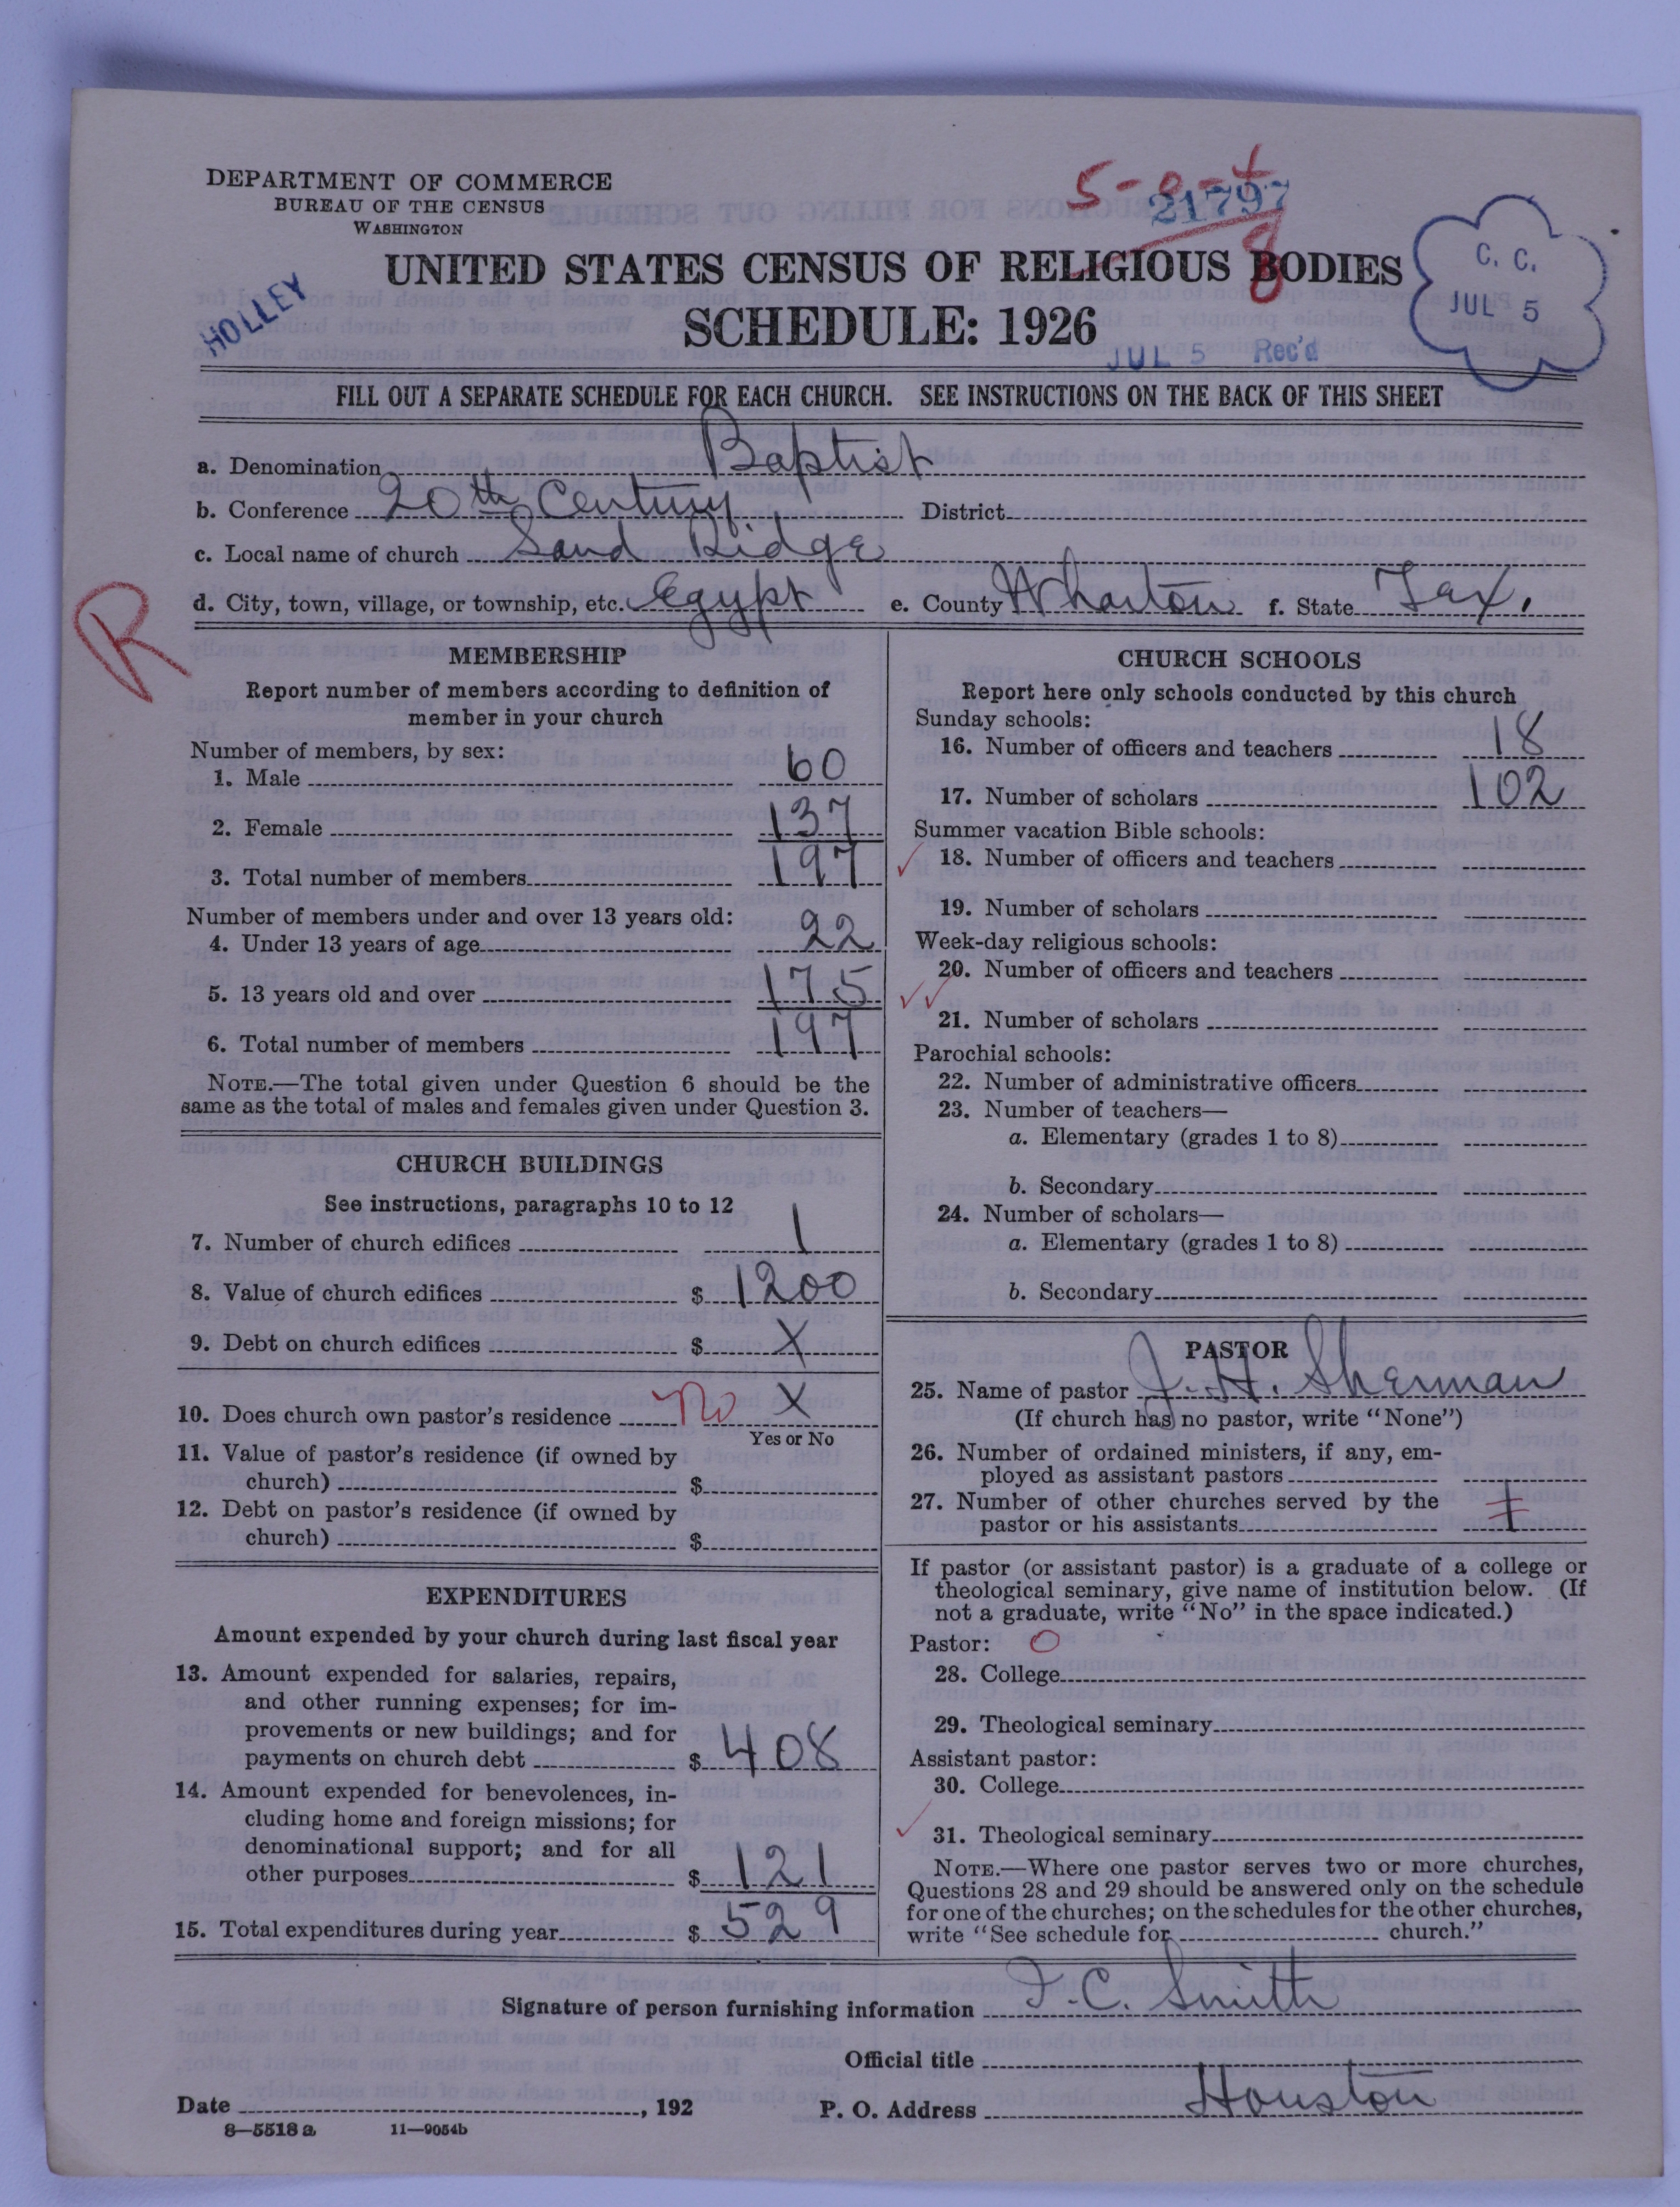 DEPARTMENT OF COMMERCE
BUREAU OF THE CENSUS
WASHINGTON
5-0-4
21797
8
UNITED STATES CENSUS OF RELIGIOUS BODIES
SCHEDULE: 1926
HOLLEY
C. C.
JUL 5
JUL 5 Rec'd
FILL OUT A SEPARATE SCHEDULE FOR EACH CHURCH. SEE INSTRUCTIONS ON THE BACK OF THIS SHEET
a. Denomination Baptist
b. Conference 20th Century District
c. Local name of church Sand Ridge
d. City, town, village, or township, etc. Egypt e. County Wharton f. State Tex.
R
MEMBERSHIP
Report number of members according to definition of
member in your church
Number of members, by sex:
1. Male 60
2. Female 137
3. Total number of members 197
Number of members under and over 13 years old:
4. Under 13 years of age 22
5. 13 years old and over 175
6. Total number of members 197
NOTE.—The total given under Question 6 should be the
same as the total of males and females given under Question 3.
CHURCH BUILDINGS
See instructions, paragraphs 10 to 12
7. Number of church edifices 1
8. Value of church edifices $ 1200
9. Debt on church edifices $ X
10. Does church own pastor's residence no X
Yes or No
11. Value of pastor's residence (if owned by
church) $
12. Debt on pastor's residence (if owned by
church) $
EXPENDITURES
Amount expended by your church during last fiscal year
13. Amount expended for salaries, repairs,
and other running expenses; for im-
provements or new buildings; and for
payments on church debt $ 408
14. Amount expended for benevolences, in-
cluding home and foreign missions; for
denominational support; and for all
other purposes $ 121
15. Total expenditures during year $ 529
CHURCH SCHOOLS
Report here only schools conducted by this church
Sunday schools:
16. Number of officers and teachers 18
17. Number of scholars 102
Summer vacation Bible schools:
18. Number of officers and teachers
19. Number of scholars
Week-day religious schools:
20. Number of officers and teachers
21. Number of scholars
Parochial schools:
22. Number of administrative officers
23. Number of teachers—
a. Elementary (grades 1 to 8)
b. Secondary
24. Number of scholars—
a. Elementary (grades 1 to 8)
b. Secondary
PASTOR
25. Name of pastor J. H. Sherman
(If church has no pastor, write "None")
26. Number of ordained ministers, if any, em-
ployed as assistant pastors
27. Number of other churches served by the
pastor or his assistants 1
If pastor (or assistant pastor) is a graduate of a college or
theological seminary, give name of institution below. (If
not a graduate, write "No" in the space indicated.)
Pastor: O
28. College
29. Theological seminary
Assistant pastor:
30. College
31. Theological seminary
NOTE.—Where one pastor serves two or more churches,
Questions 28 and 29 should be answered only on the schedule
for one of the churches; on the schedules for the other churches,
write "See schedule for church."
Signature of person furnishing information J. C. Smith
Official title
Date , 192 P. O. Address Houston
8—5518 a 11—9054b